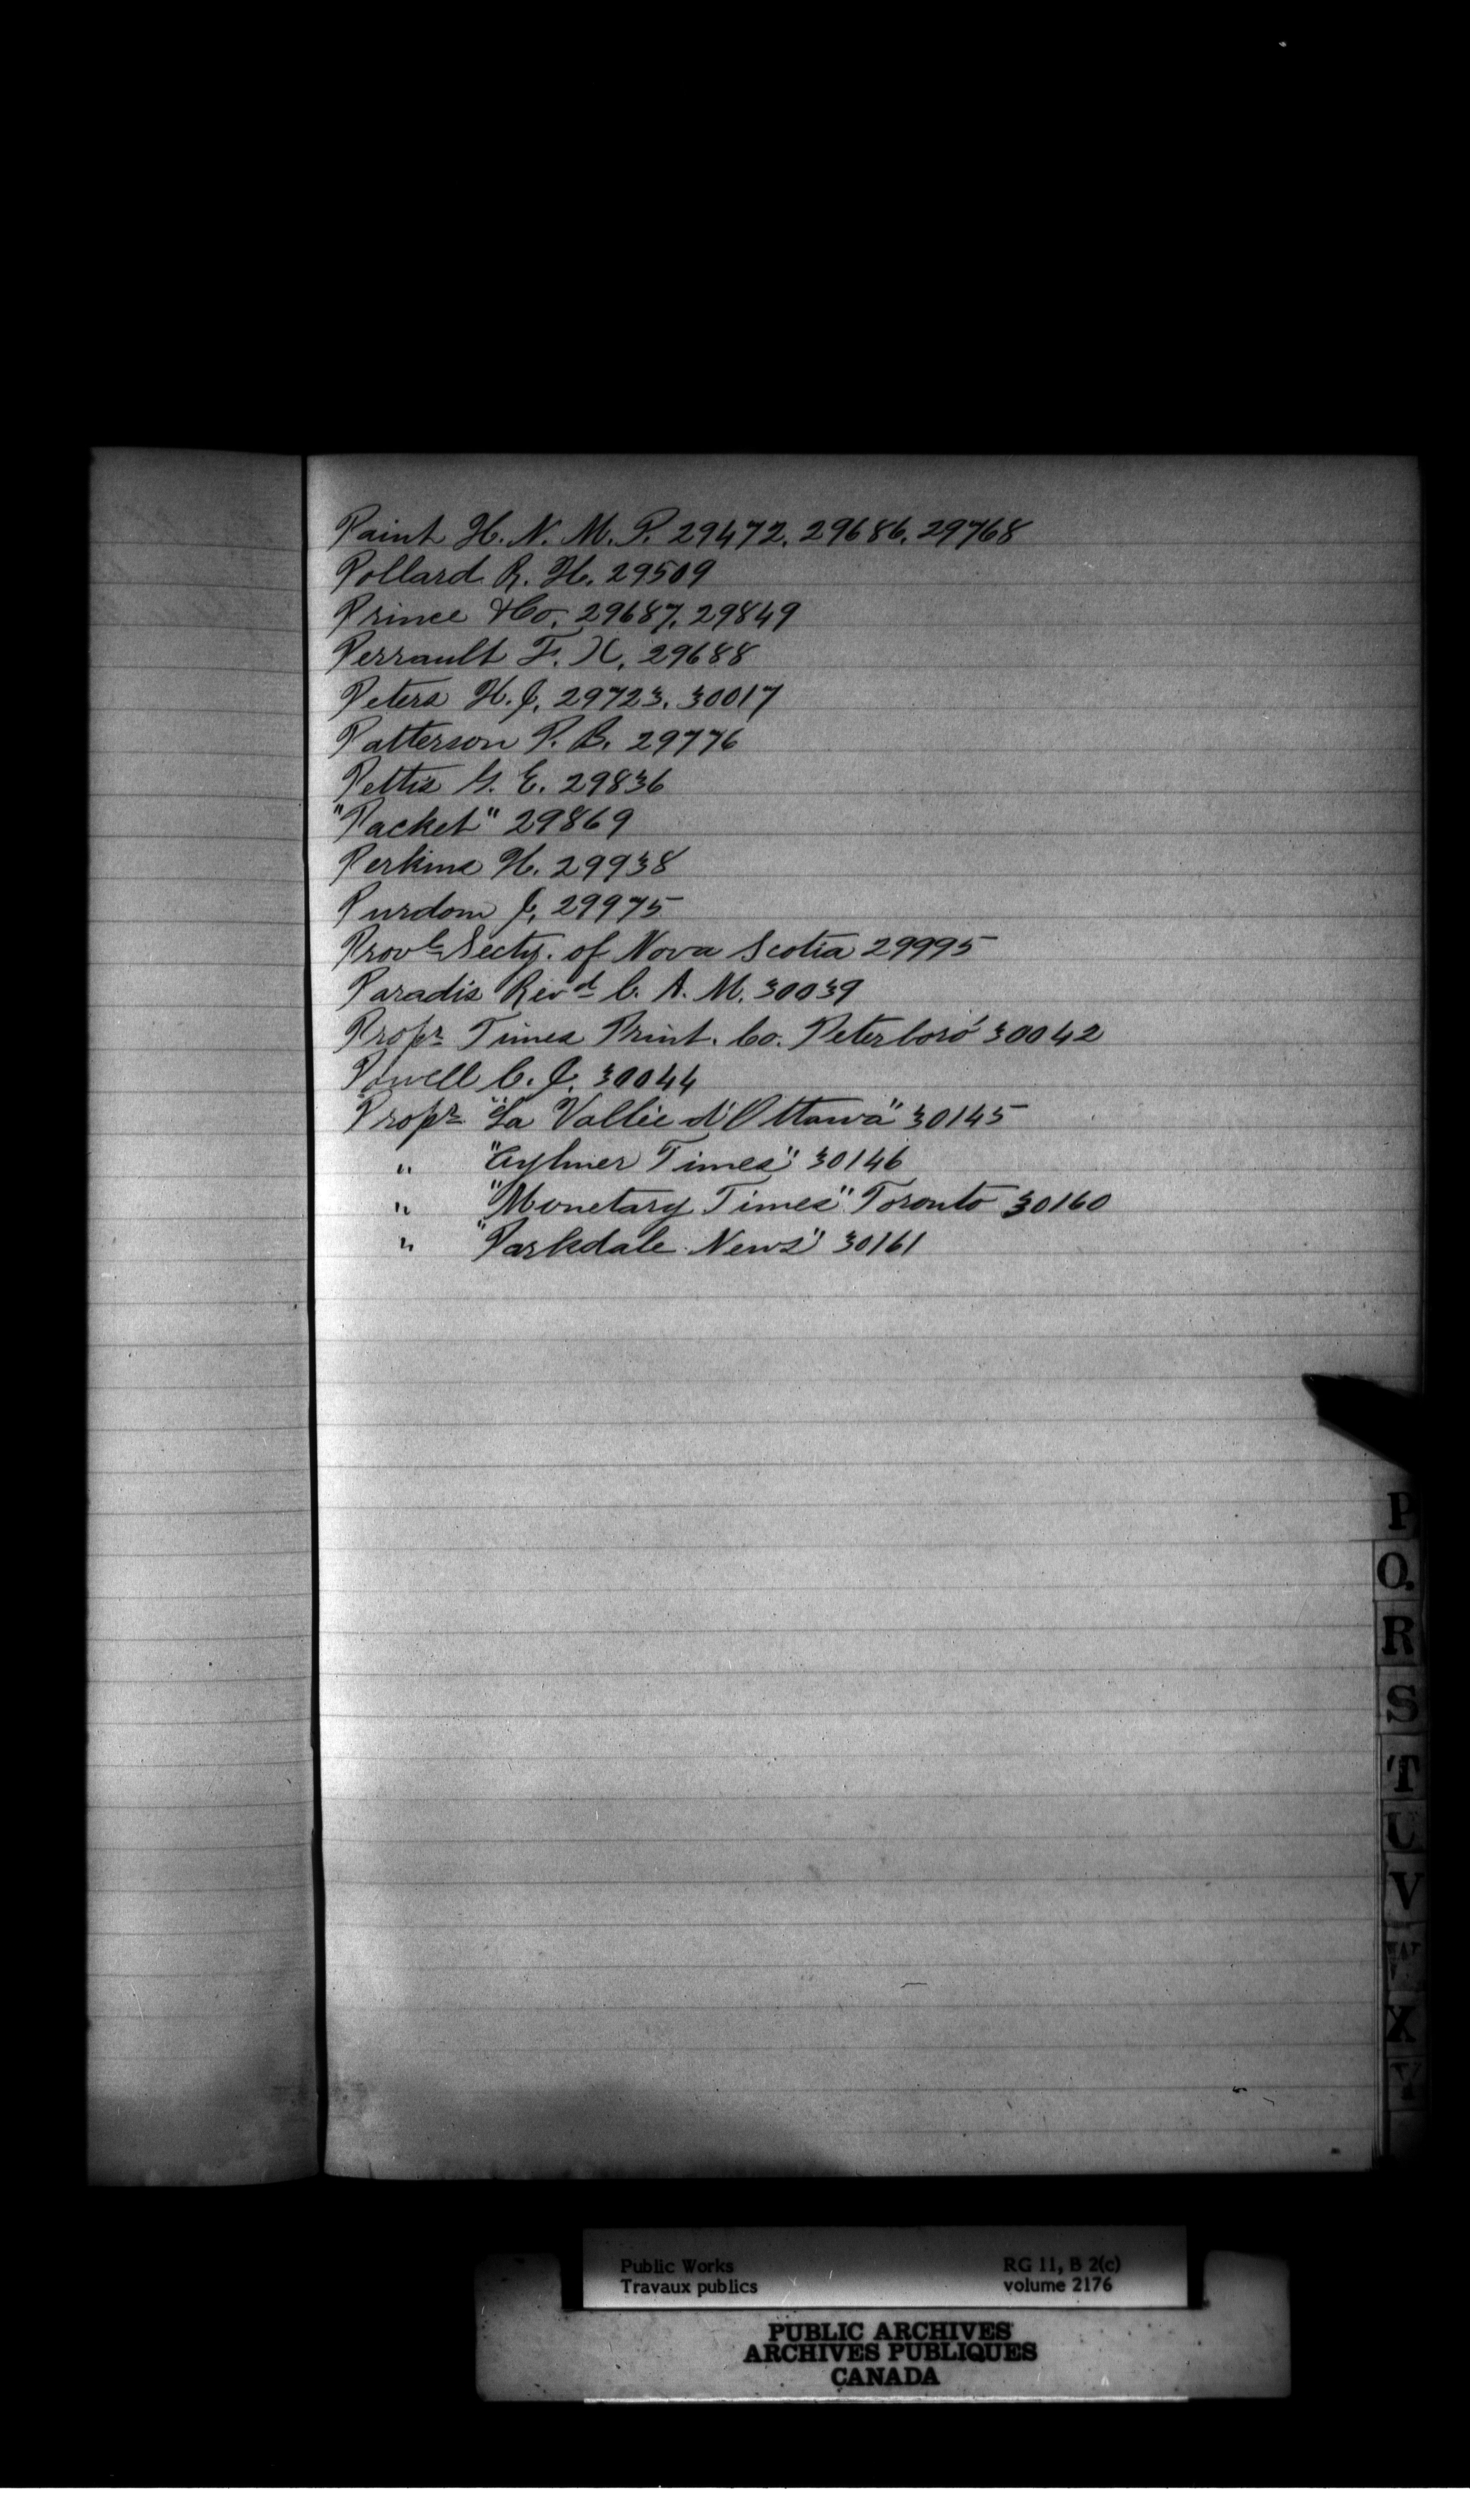 Paint H. N. M. P. 29472. 29686. 29768
Pollard R. H. 29509
Prince & Co. 29687. 29849
Perrault F. X. 29688
Peters H. J. 29723. 30017
Patterson P. B. 29776
Pettis G. E. 29836
"Packet" 29869
Perkins H. 29938
Purdom J. 29975
Provl Secty. of Nova Scotia 29995
Paradis Revd C. A. M. 30039
Propr Times Print. Co. Peterboro' 30042
Powell C. J. 30044
Propr "La Vallée d'Ottawa" 30145
" "Aylmer Times" 30146
" "Monetary Times" Toronto 30160
" "Parkdale News" 30161
P
Q.
R
S
T
U
V
W
X
Y
Public Works RG 11, B 2(c)
Travaux publics volume 2176
PUBLIC ARCHIVES
ARCHIVES PUBLIQUES
CANADA